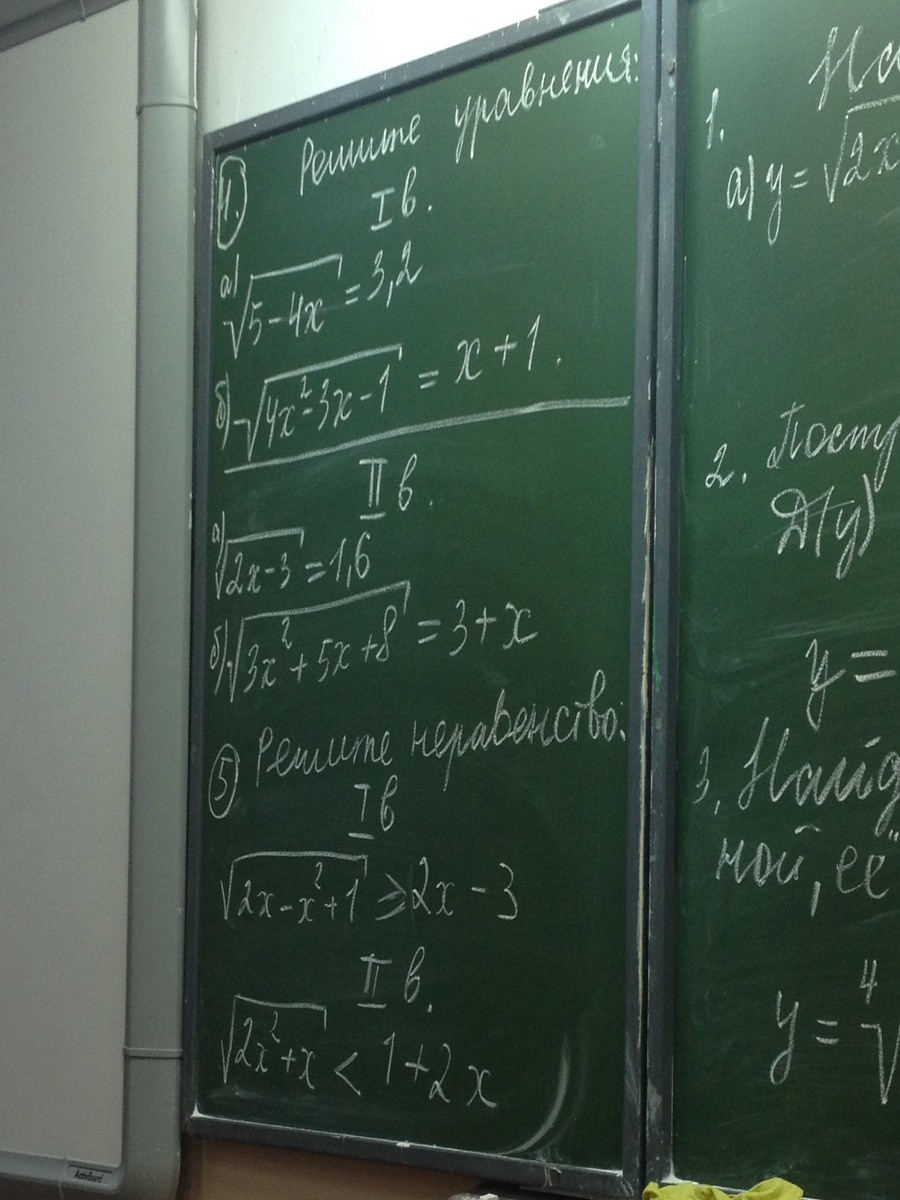 4. Решите уравнения:
I в.
а) √5-4x = 3,2
б) √4x²-3x-1 = x+1.
II в.
а) √2x-3 = 1,6
б) √3x²+5x+8 = 3+x
5 Решите неравенство:
I в
√2x-x²+1 ≥ 2x-3
II в.
√2x²+x < 1+2x
1.
а) y = √2x
2.
D(y)
y =
3.
ной, её
y = ⁴√
ActivBoard